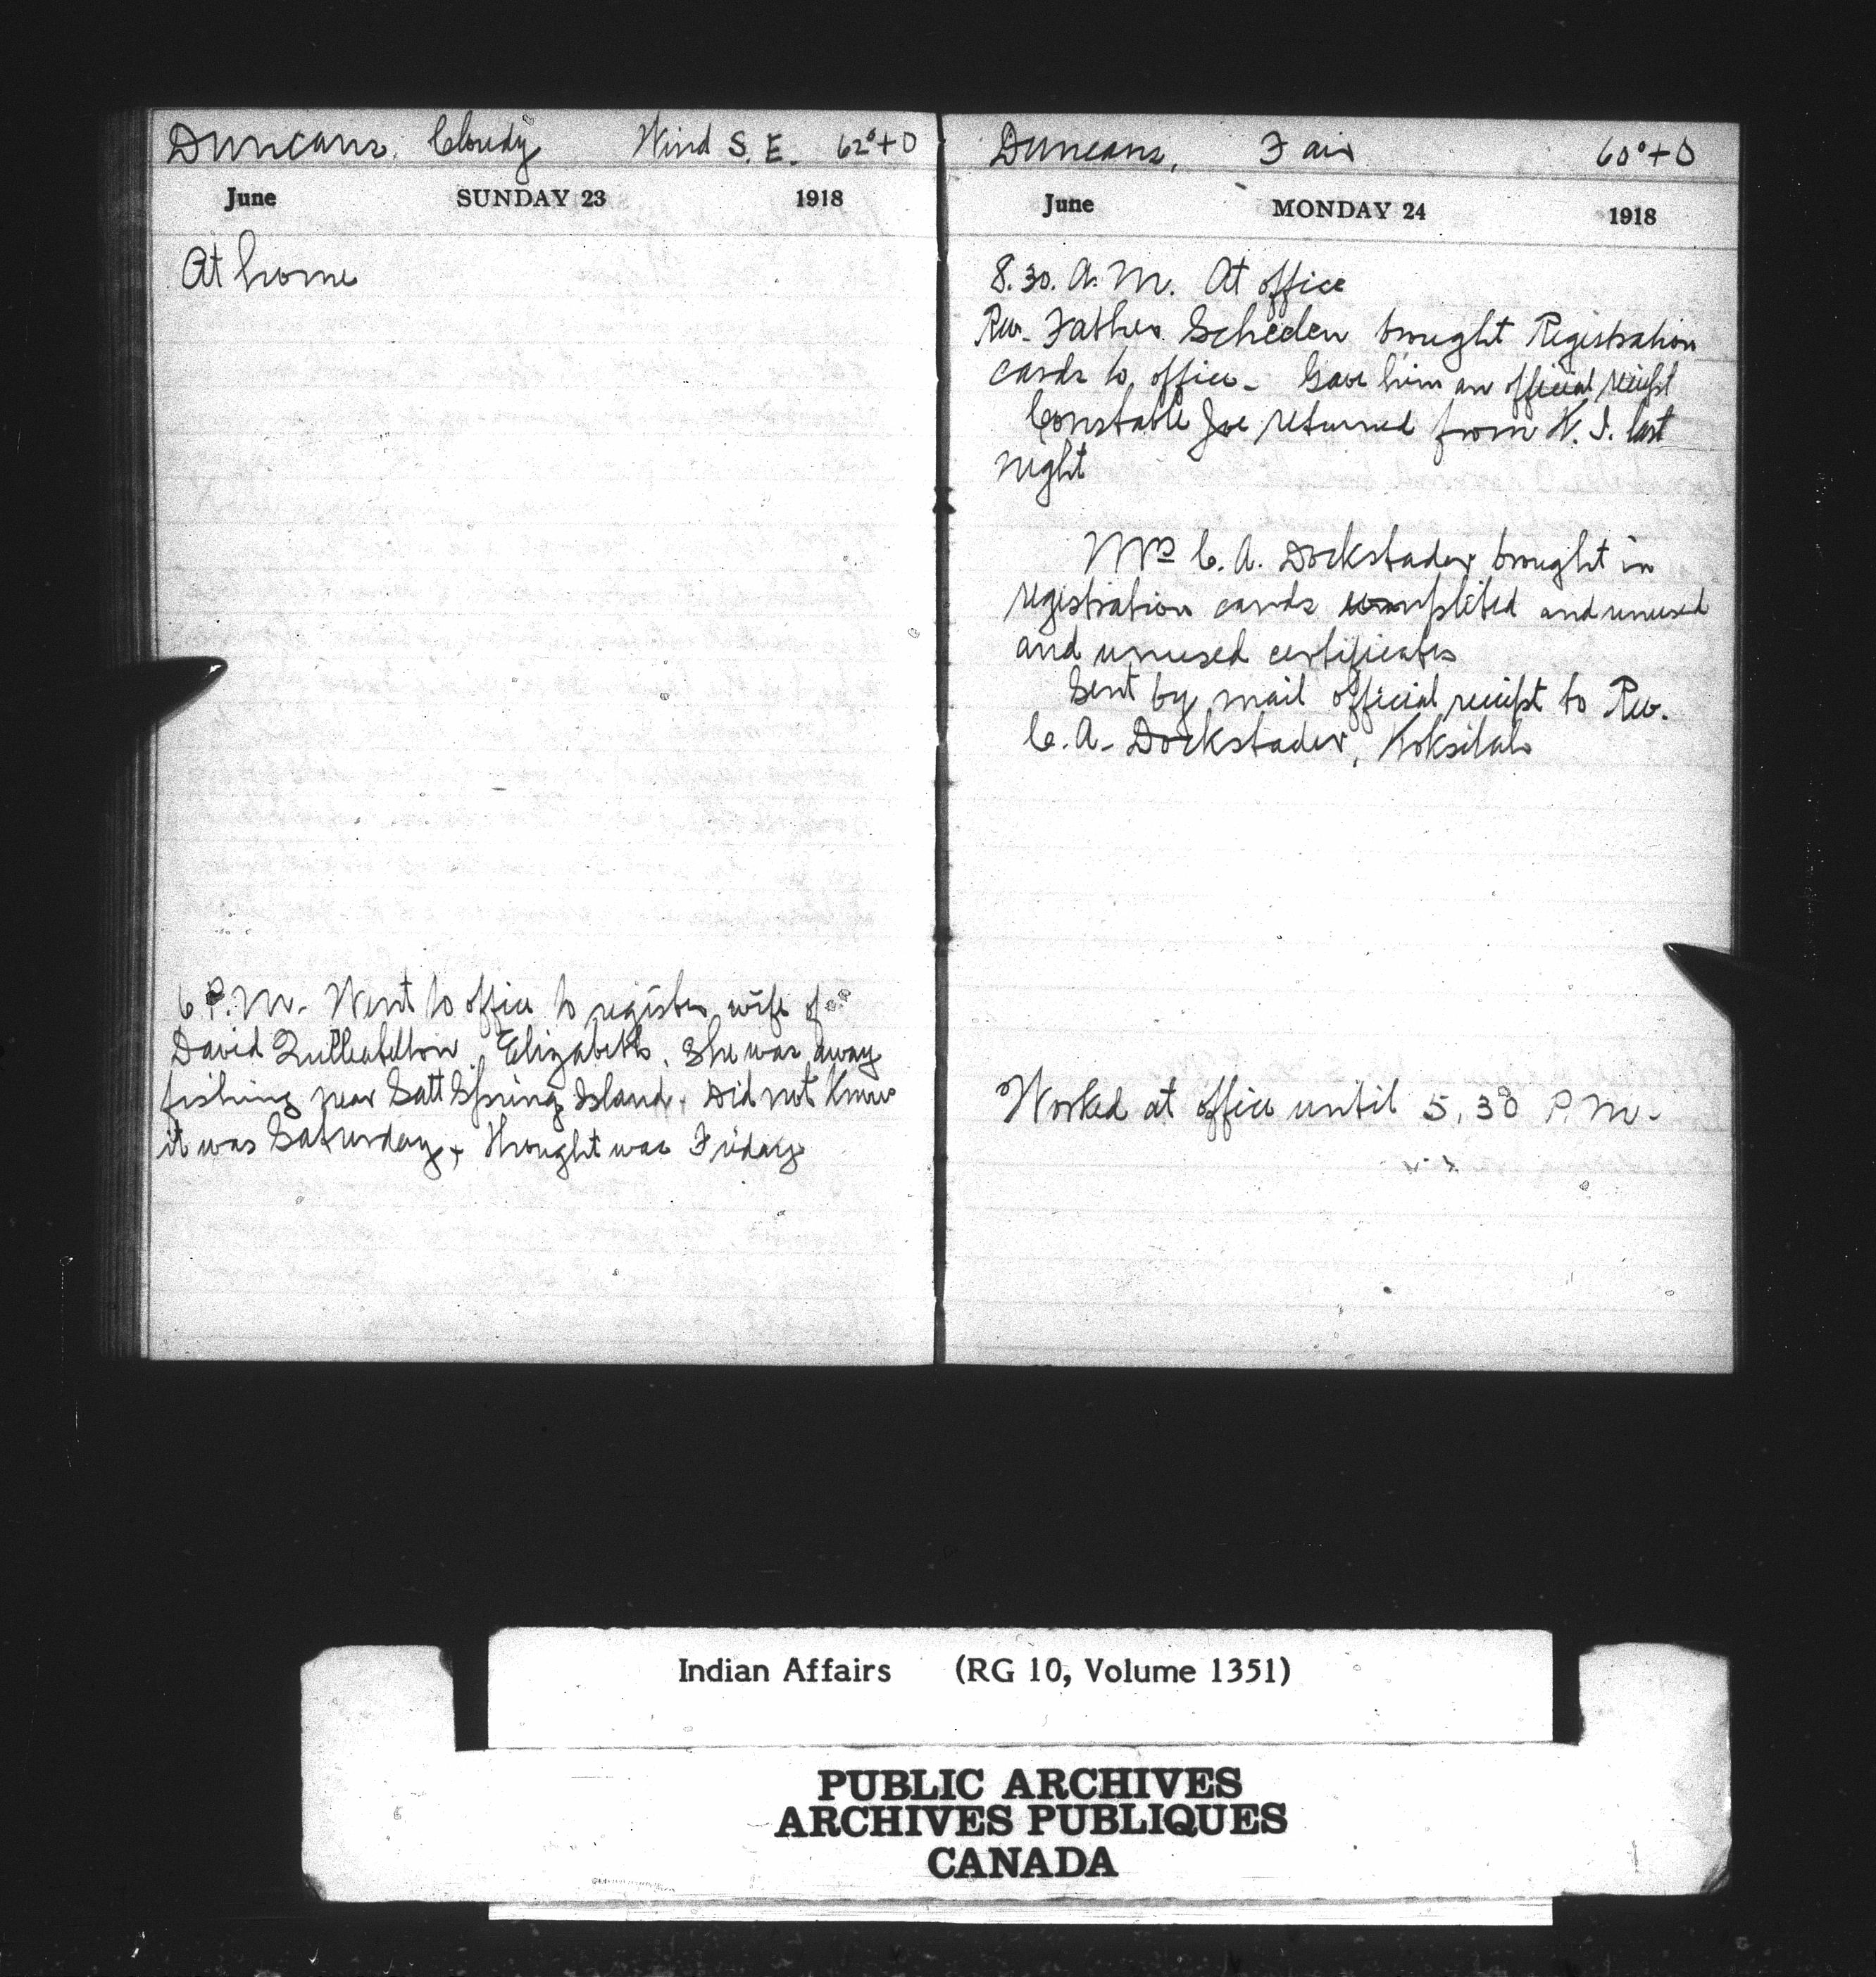 Duncans. Cloudy Wind S. E. 62°+0
June SUNDAY 23 1918
At home
6 P.M. Went to office to register wife of
David Elizabeth. She was away
fishing near Salt Spring Island. Did not know
it was Saturday, thought was Friday
Duncans, Fair 60°+0
June MONDAY 24 1918
8.30. A. M. At office
Rev. Father Scheelen brought Registration
cards to office - Gave him an official receipt
Constable Joe returned from K. I. last
night
Mrs C. A. Dockstader brought in
registration cards completed and unused
and unused certificates
Sent by mail official receipt to Rev.
C. A. Dockstader, Koksilah
Worked at office until 5.30 P.M.
Indian Affairs (RG 10, Volume 1351)
PUBLIC ARCHIVES
ARCHIVES PUBLIQUES
CANADA